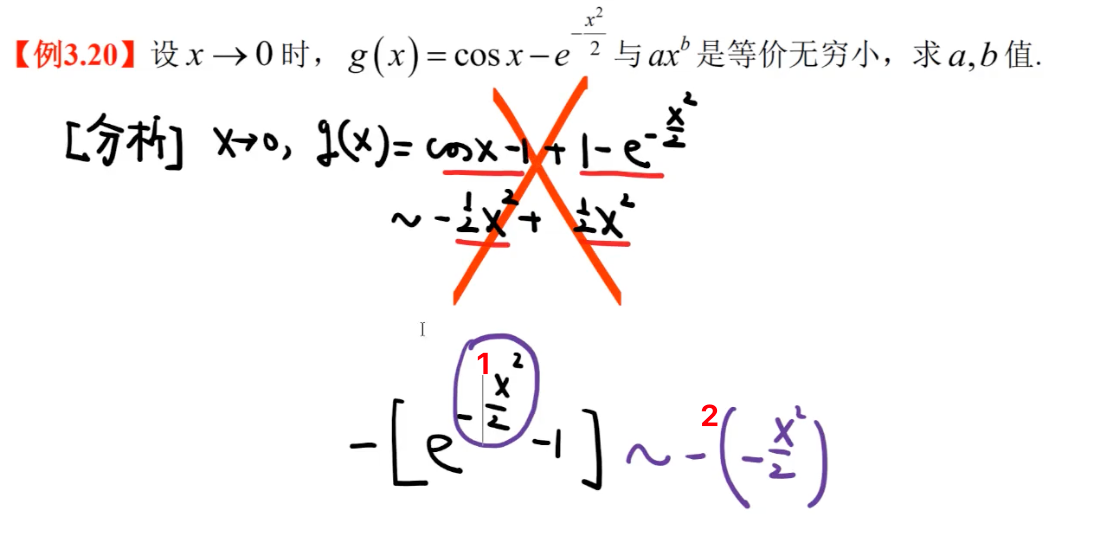 【例3.20】设 x → 0 时，g(x) = cos x − e^{−x²/2} 与 ax^b 是等价无穷小，求 a,b 值.
[分析] x→0, g(x) = cosx −1 + 1 − e^{−x²/2}
~ −½x² + ½x²
−[e^{−x²/2} −1] ~ −(−x²/2)
1
2